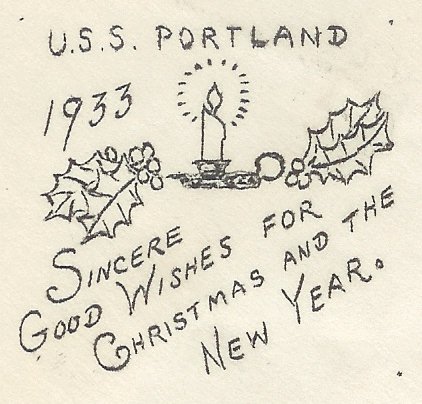 U.S.S. PORTLAND
1933
SINCERE
GOOD WISHES FOR
CHRISTMAS AND THE
NEW YEAR.